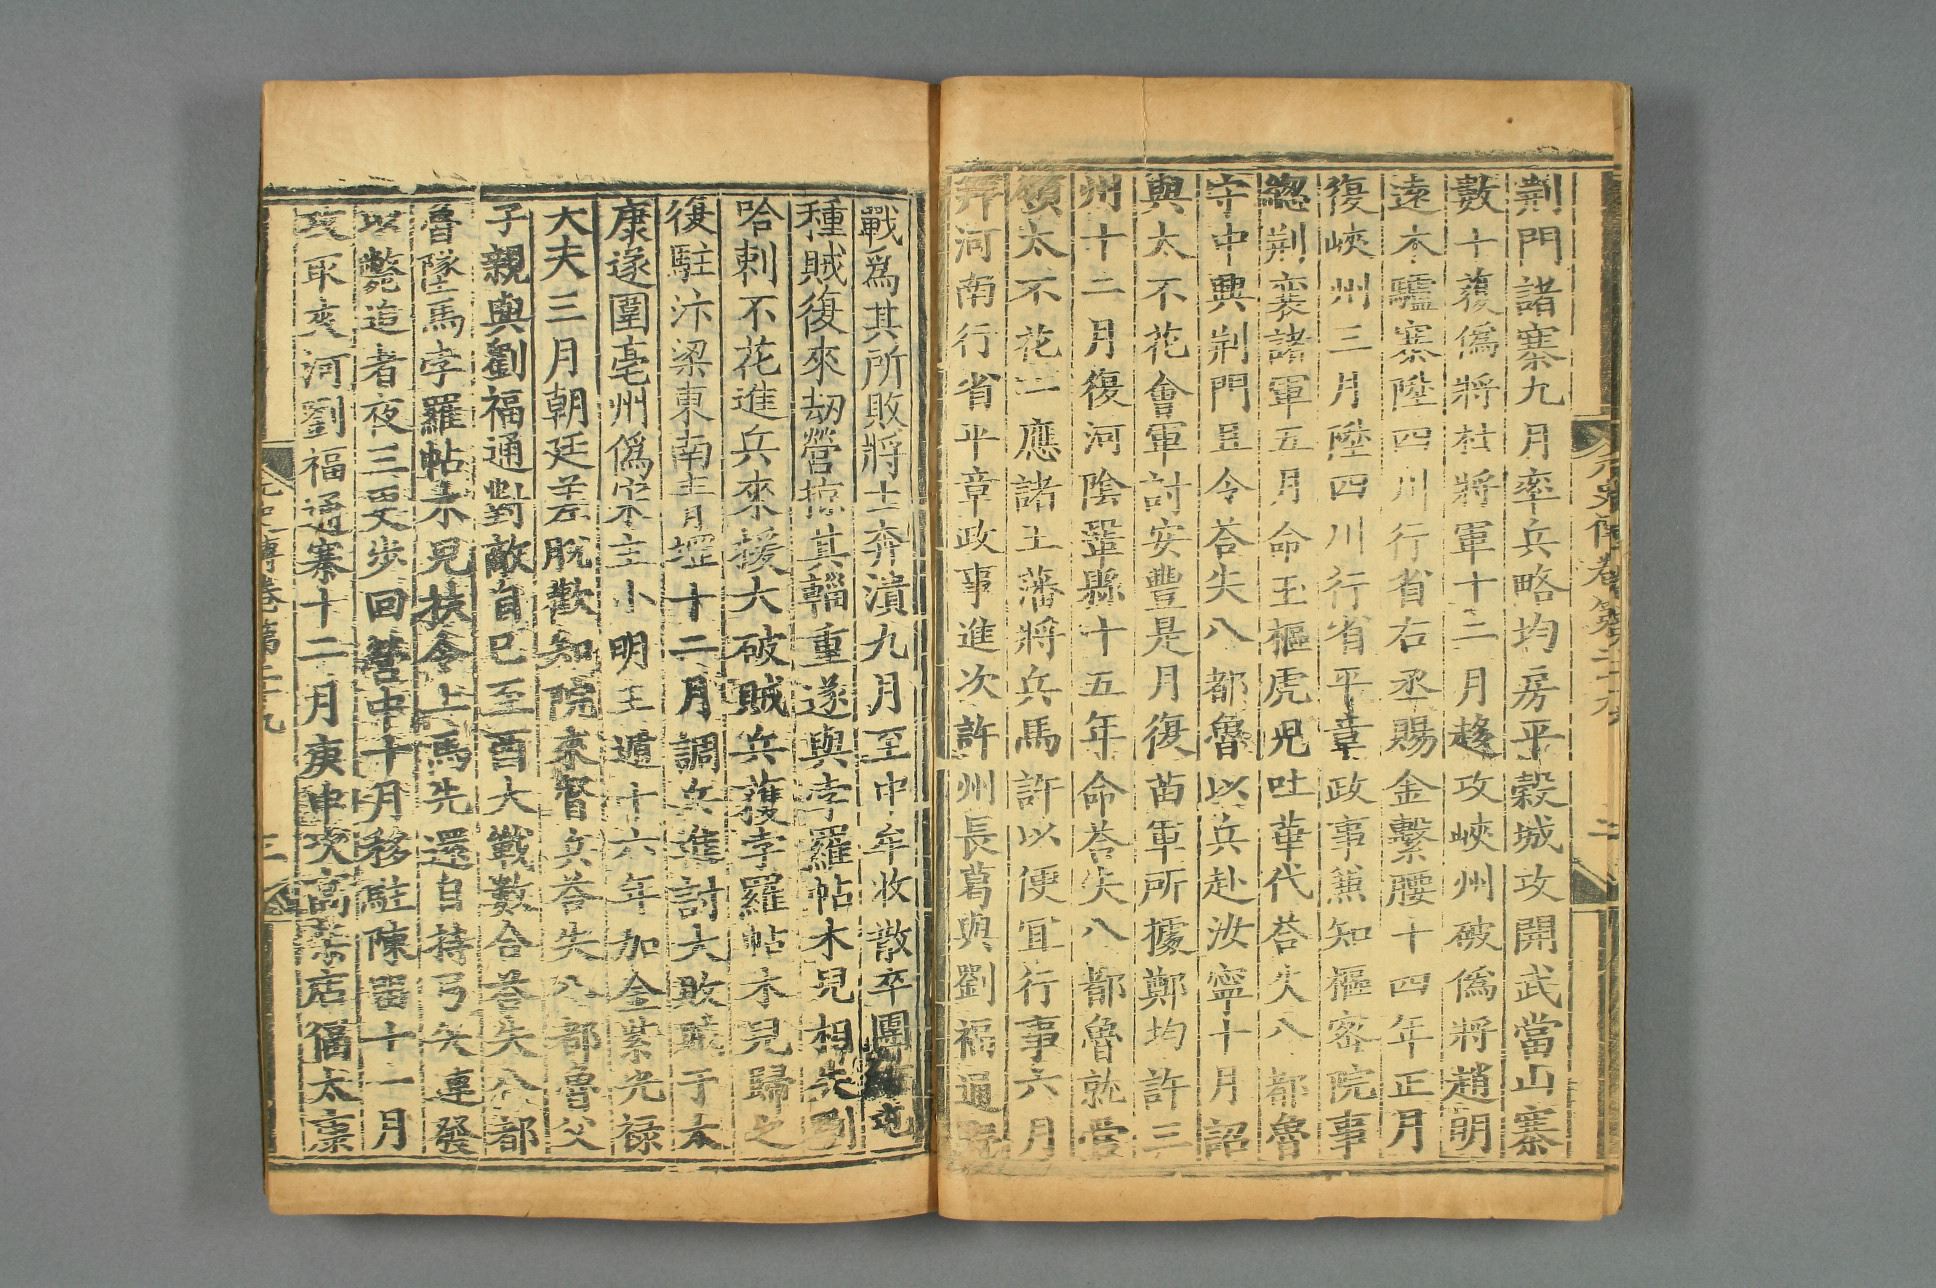 荊門諸寨九月率兵略均房平穀城攻開武當山寨
數十獲偽將杜將軍十二月趍攻峽州破偽將趙明
遠木驢寨陞四川行省右丞賜金繫腰十四年正月
復峽州三月陞四川行省平章政事兼知樞密院事
總荊襄諸軍五月命玉樞虎兒吐華代荅失八都魯
守中興荊門且令荅失八都魯以兵赴汝寧十月詔
與太不花會軍討安豐是月復苗軍所據鄭均許三
州十二月復河陰鞏縣十五年命荅失八都魯就管
領太不花一應諸王藩將兵馬許以便宜行事六月
拜河南行省平章政事進次許州長葛與劉福通野
戰爲其所敗將士奔潰九月至中牟收散卒團
種賊復來劫營掠其輜重遂與孛羅帖木兒相失劉
哈剌不花進兵來援大破賊兵獲孛羅帖木兒歸之
復駐汴梁東南青堽十二月調兵進討大敗賊于太
康遂圍亳州偽宋主小明王遁十六年加金紫光祿
大夫三月朝廷差脫歡知院來督兵荅失八都魯父
子親與劉福通對敵自巳至酉大戰數合荅失八都
魯墜馬孛羅帖木兒扶令上馬先還自持弓矢連發
以斃追者夜三更步回營中十月移駐陳留十一月
攻取夾河劉福通寨十二月庚申次高柴店偪太康
元史傳卷第二十九
三